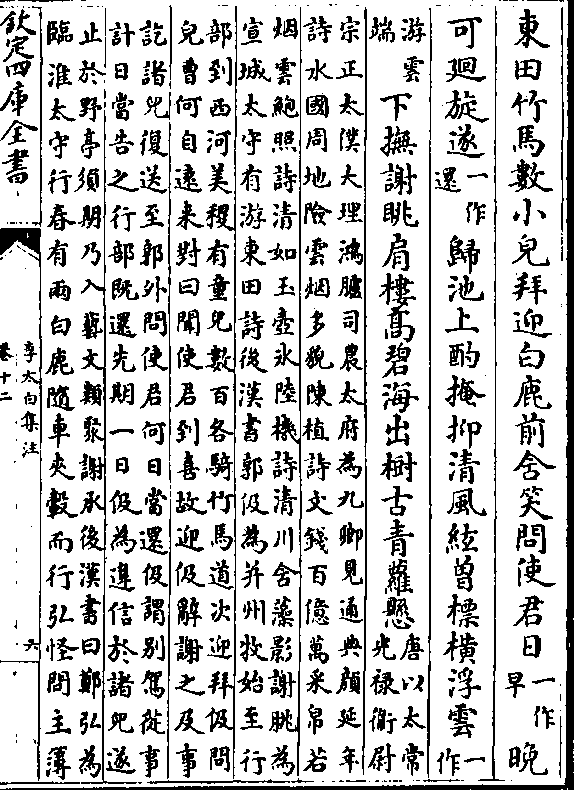 東田竹馬數小兒拜迎白鹿前含笑問使君日一作早晚
可廻旋遂一作還歸池上酌掩抑清風絃曽標横浮雲一作
游雲端下撫謝眺肩樓髙碧海出樹古青蘿懸唐以太常
光禄衛尉
宗正太僕大理鴻臚司農太府為九卿見通典顔延年
詩水國周地險雲烟多貌陳植詩文錢百億萬采帛若
烟雲鮑照詩清如玉壺氷陸機詩清川含藻影謝眺為
宣城太守有游東田詩後漢書郭伋為并州牧始至行
部到西河美稷有童兒數百各騎竹馬道次迎拜伋問
兒曹何自遠來對曰聞使君到喜故迎伋解謝之及事
訖諸兒復送至郭外問使君何日當還伋謂别駕從事
計日當告之行部既還先期一日伋為違信於諸兒遂
止於野亭須期乃入藝文類聚謝承後漢書曰鄭弘為
臨淮太守行春有兩白鹿隨車夾轂而行弘怪問主簿
欽定四庫全書
李太白集注
卷十二
六